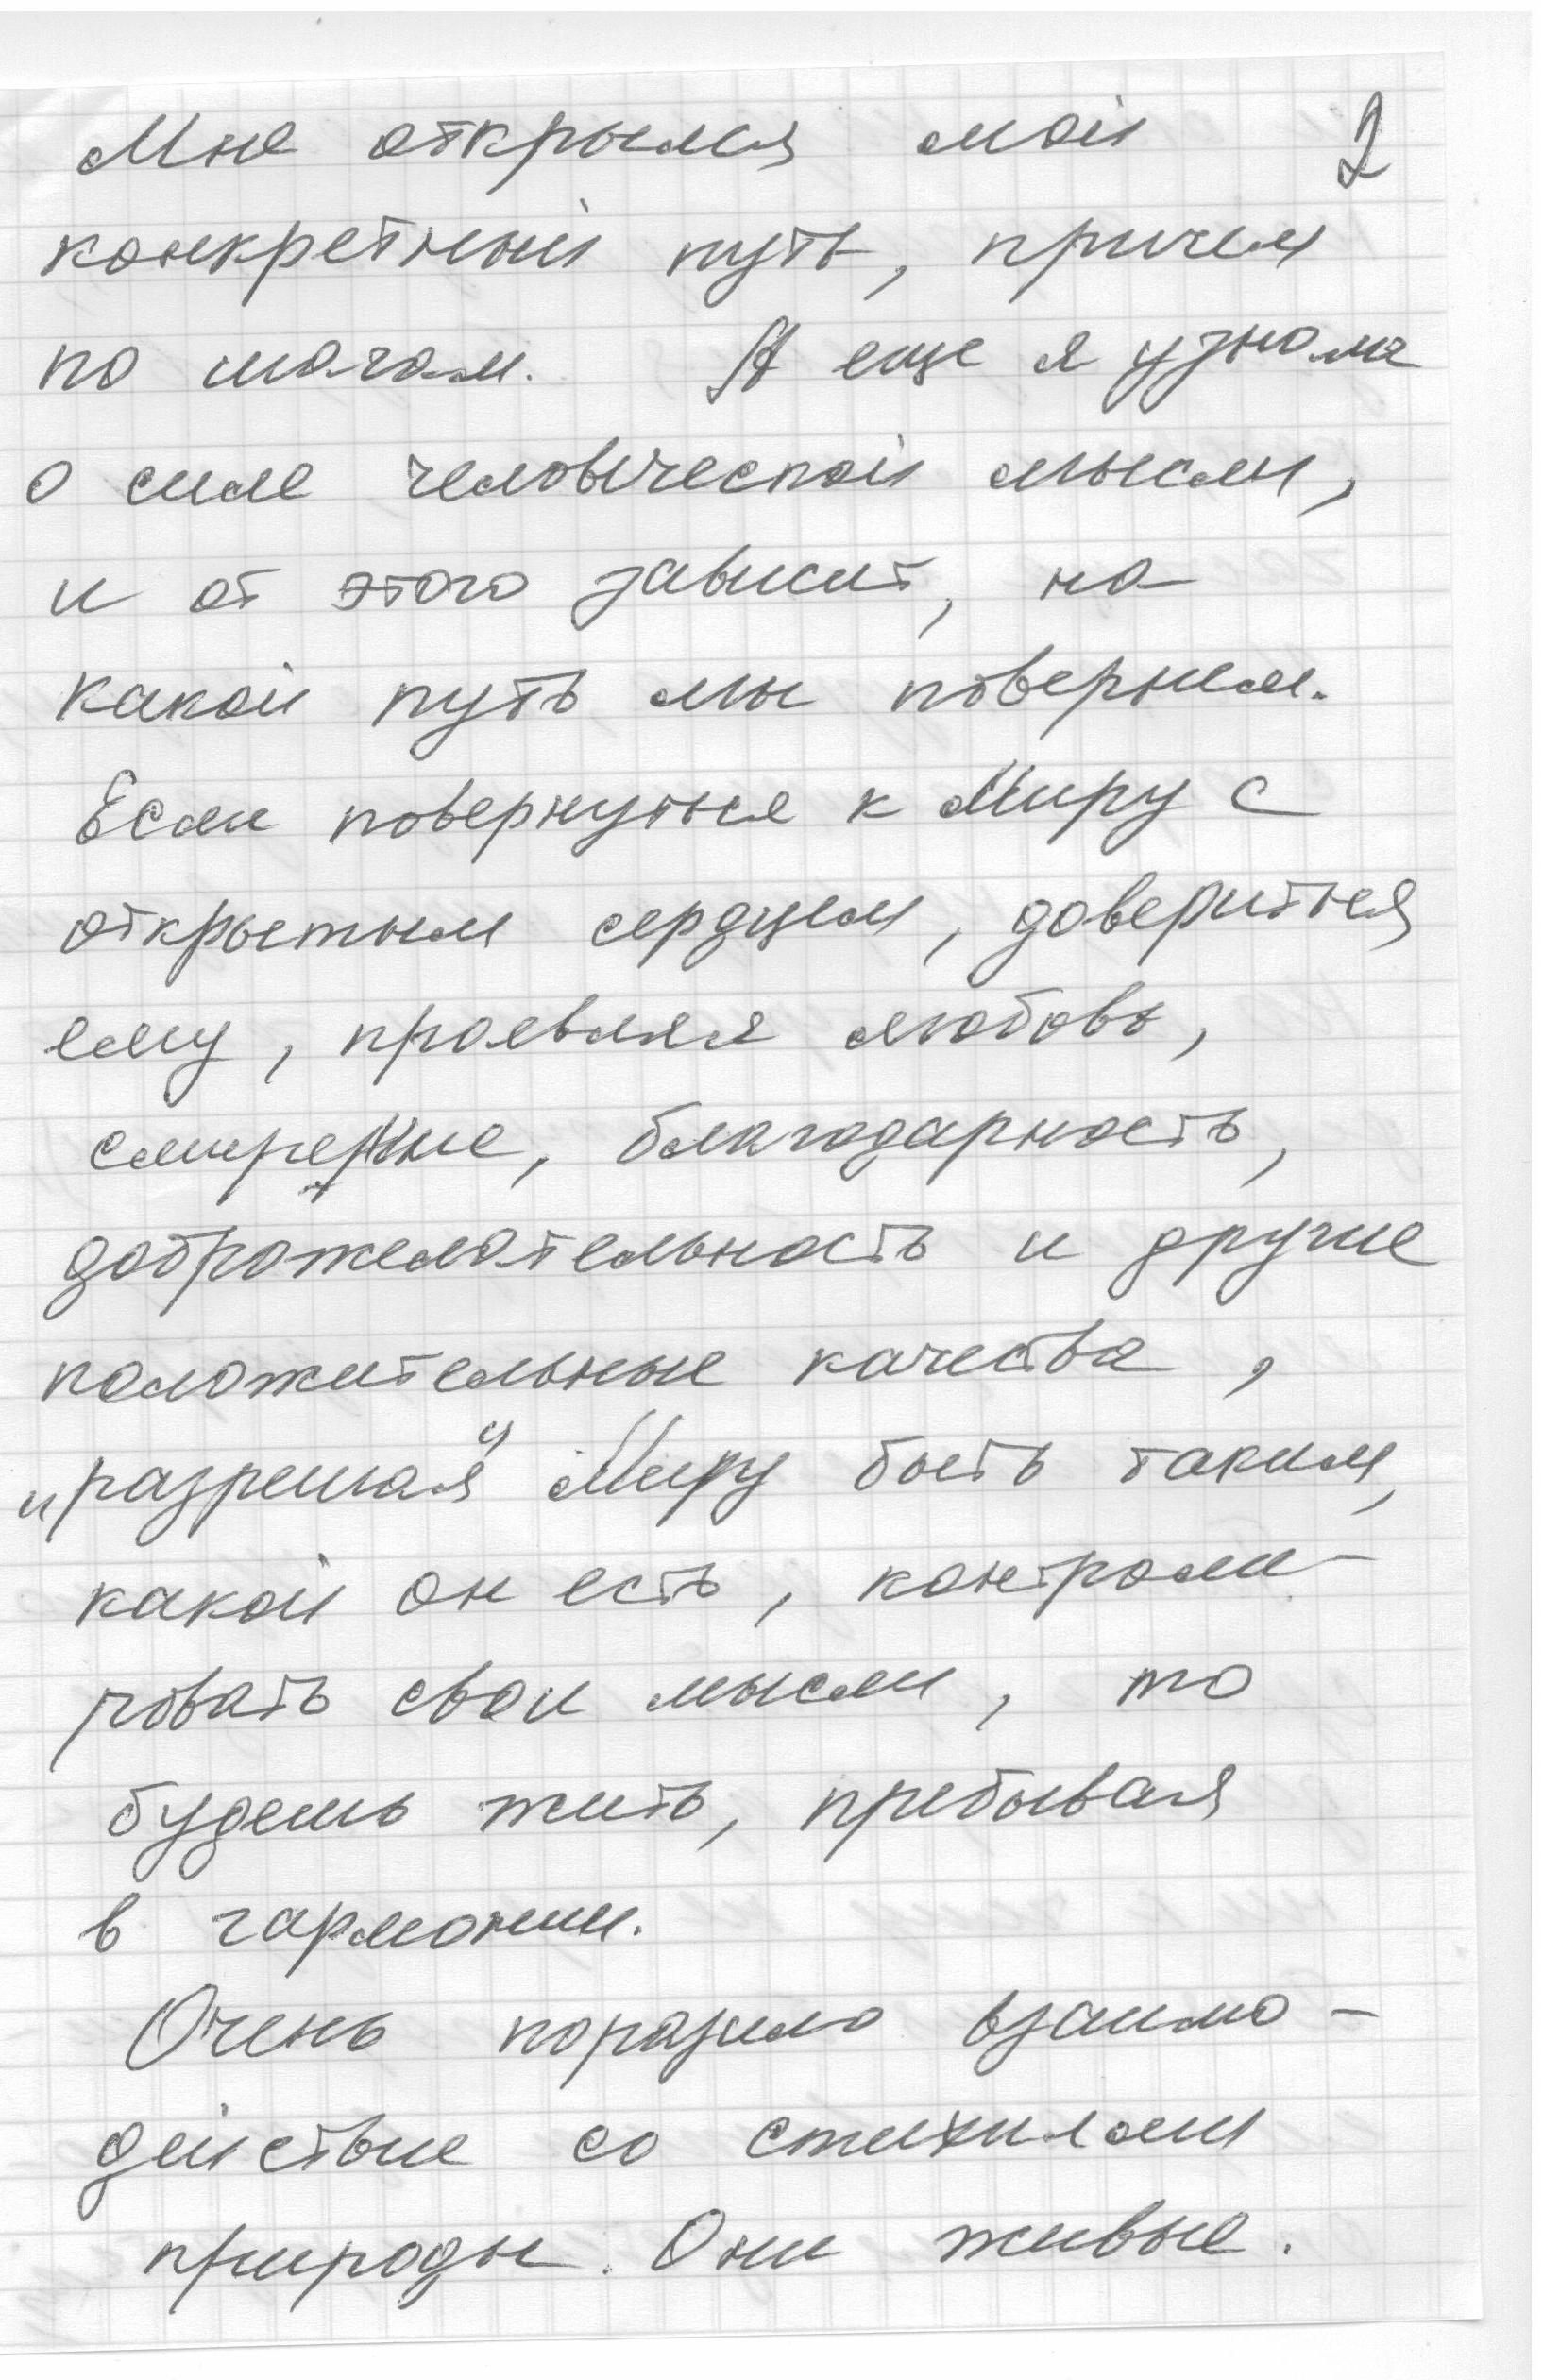 Мне открылся мой 2
конкретный путь, причем
по шагам. А еще я узнала
о силе человеческой мысли,
и от этого зависит, на
какой путь мы повернем.
Если повернуться к Миру с
открытым сердцем, довериться
ему, проявляя любовь,
смирение, благодарность,
доброжелательность и другие
положительные качества,
"разрешая" Миру быть таким,
какой он есть, контроли-
ровать свои мысли, то
будешь жить, пребывая
в гармонии.
Очень поразило взаимо-
действие со стихиями
природы. Они живые.